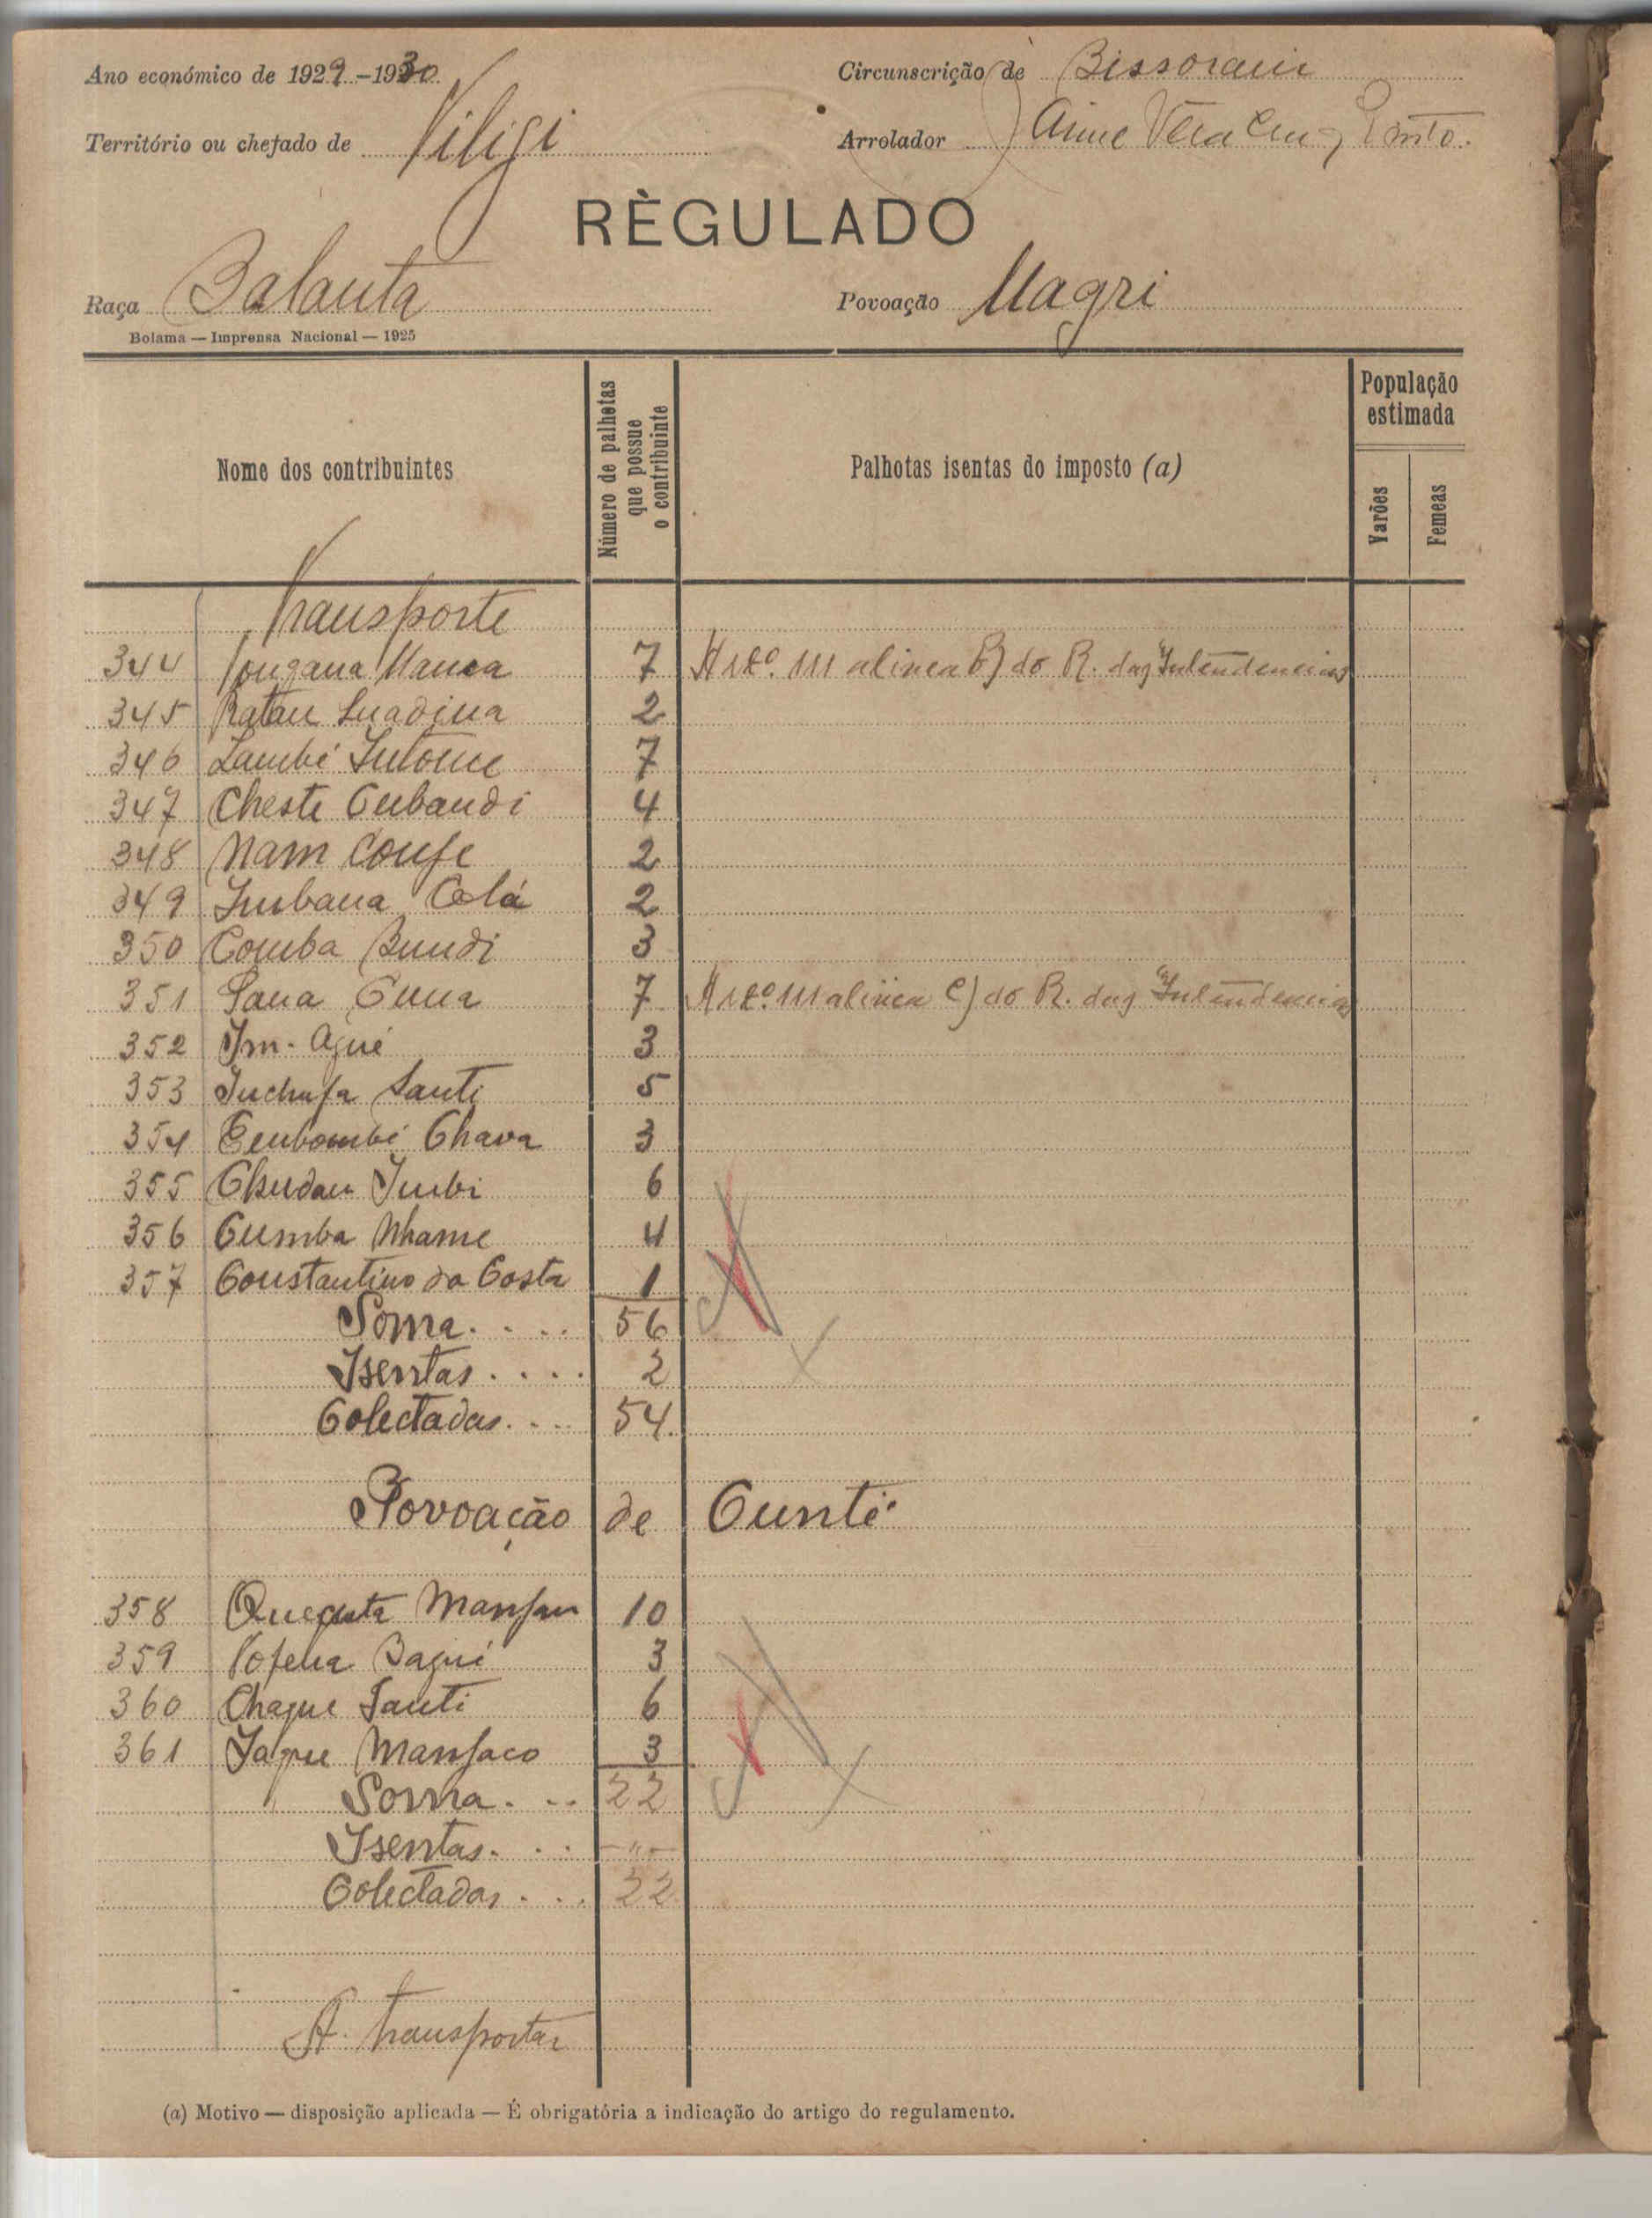 Ano económico de 1929-1930
Circunscrição de Bissoram
Território ou chefado de Niligi
Arrolador Jaime Vera Cruz Pinto.
RÈGULADO
Raça Balanta
Povoação Magri
Bolama — Imprensa Nacional — 1925
Nome dos contribuintes
Número de palhotas que possue o contribuinte
Palhotas isentas do imposto (a)
População estimada
Varões
Femeas
Transporte
344 7 Artº. 111 alinea B) do R. das Intendencias
345 2
346 Lambé 7
347 Cheste Cubandi 4
348 Nam 2
349 Imbana Colá 2
350 Comba Bundi 3
351 Sana 7 Artº. 111 alinea C) do R. das Intendencias
352 Im-Agué 3
353 Inchufa Santi 5
354 Chava 3
355 Imbi 6
356 Cumba Nhame 4
357 Constantino da Costa 1
Soma.... 56
Isentas.... 2
Colectadas.... 54.
Povoação de Cunté
358 10
359 Bagué 3
360 Chague 6
361 Mansaco 3
Soma... 22
Isentas... —"—
Colectadas.... 22
A transportar
(a) Motivo — disposição aplicada — É obrigatória a indicação do artigo do regulamento.